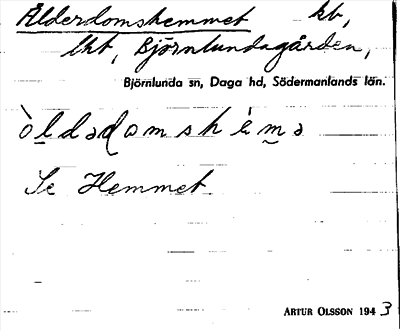 Ålderdomshemmet kb,
lht, Björnlundagården,
Björnlunda sn, Daga hd, Södermanlands län.
òldadomshèma
Se Hemmet
ARTUR OLSSON 1943